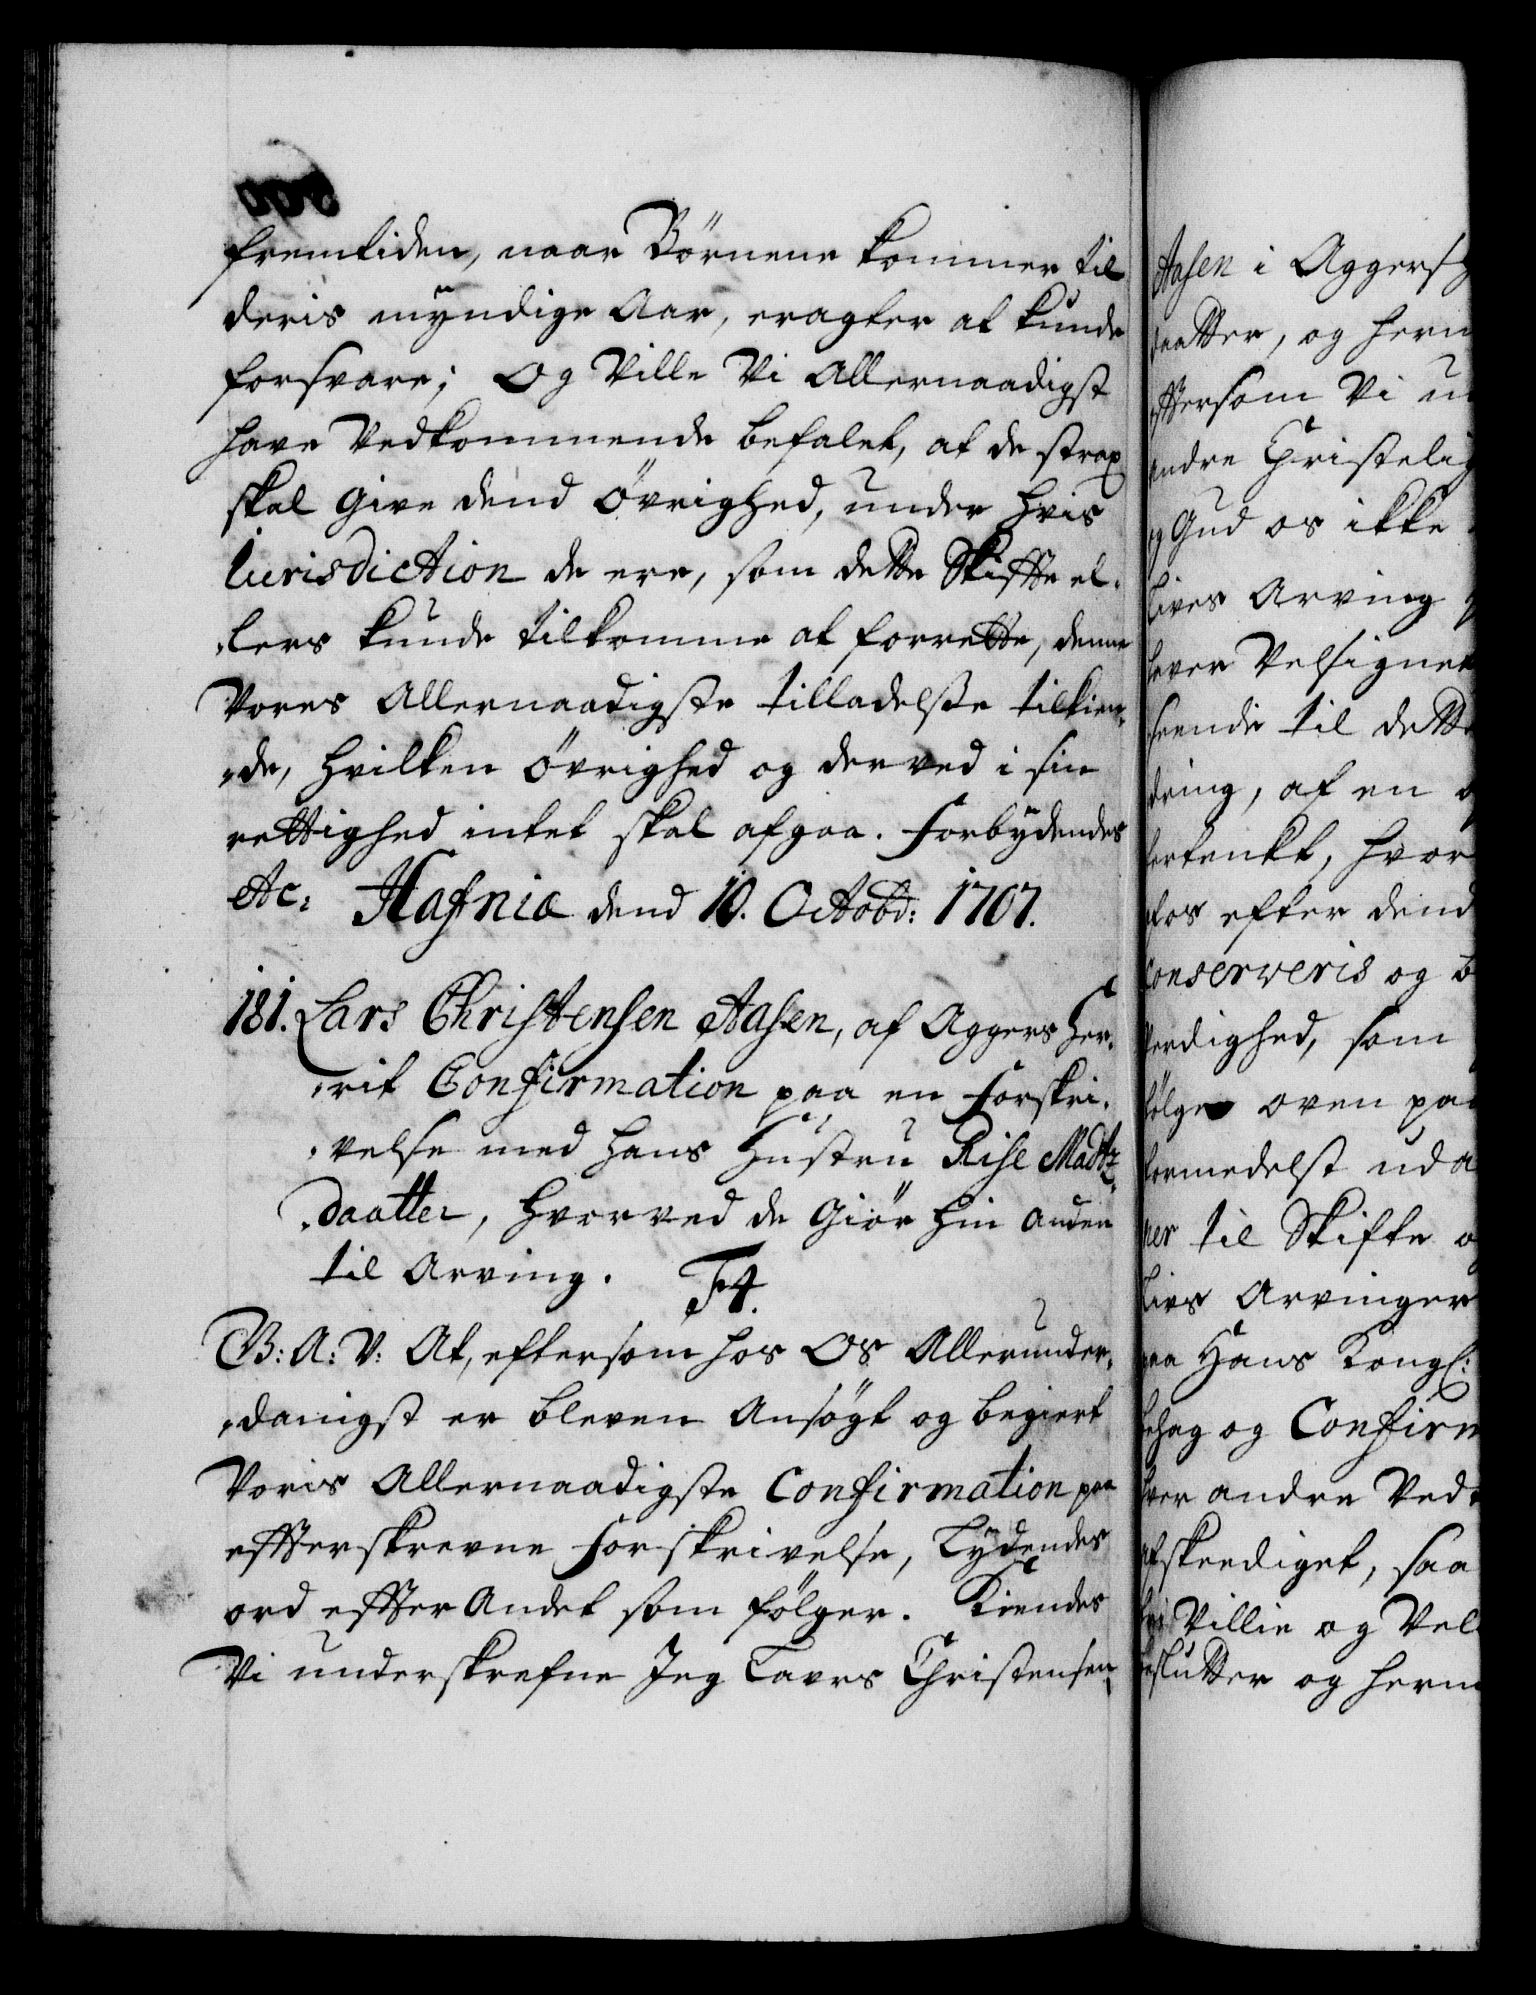 fremtiden, naar Börnene kommer til
deris myndige Aar, eragter at kunde
forsvare; Og Ville Vi Allernaadigst
have Vedkommende befalet, at de strax
skal Give dend Øvrighed, under hvis
Jurisdiction de ere, som dette Skiffte el-
-lers kunde tilkomme at forrette, denne
Vores Allernaadigste tilladelsse tilkien-
-de, hvilken Øvrighed og derved i sin
rettighed intet skal afgaa. Forbydendes
etc: Hafniæ dend 10. Octobr: 1707.
181. Lars Christensen Aasen, af Aggers Her-
-rit Confirmation paa en Forskri-
-velse med hans Hustru Rise Madtz-
-daatter, hvorved de Giör hin anden
til Arving. F4.
G: A: V: At, eftersom hos Os Allerunder-
-danigst er bleven Ansögt og begiert
Voris Allernaadigste Confirmation paa
effterskrevne Forskrivelse, Lydendes
ord effter Andet som fölger. Kiendes
Vi underskrefne Jeg Laurs Christensen
Aasen i Aggers
daatter, og her
efftersom Vi
andre Christelig
og Gud os ikke
Livs Arving
haver Velsignet
seende til dette
dring, at en
fertenkt, hvor
os efter dend
conserveris og
Verdighed, som
fölger oven paa
formedelst ud
ner til Skifte
Livs Arvinger
paa Hans Kongl:
behag og Confirm
hver andre Ved
afskeediget, saa
fri Villie og Vel
beslutter og herm